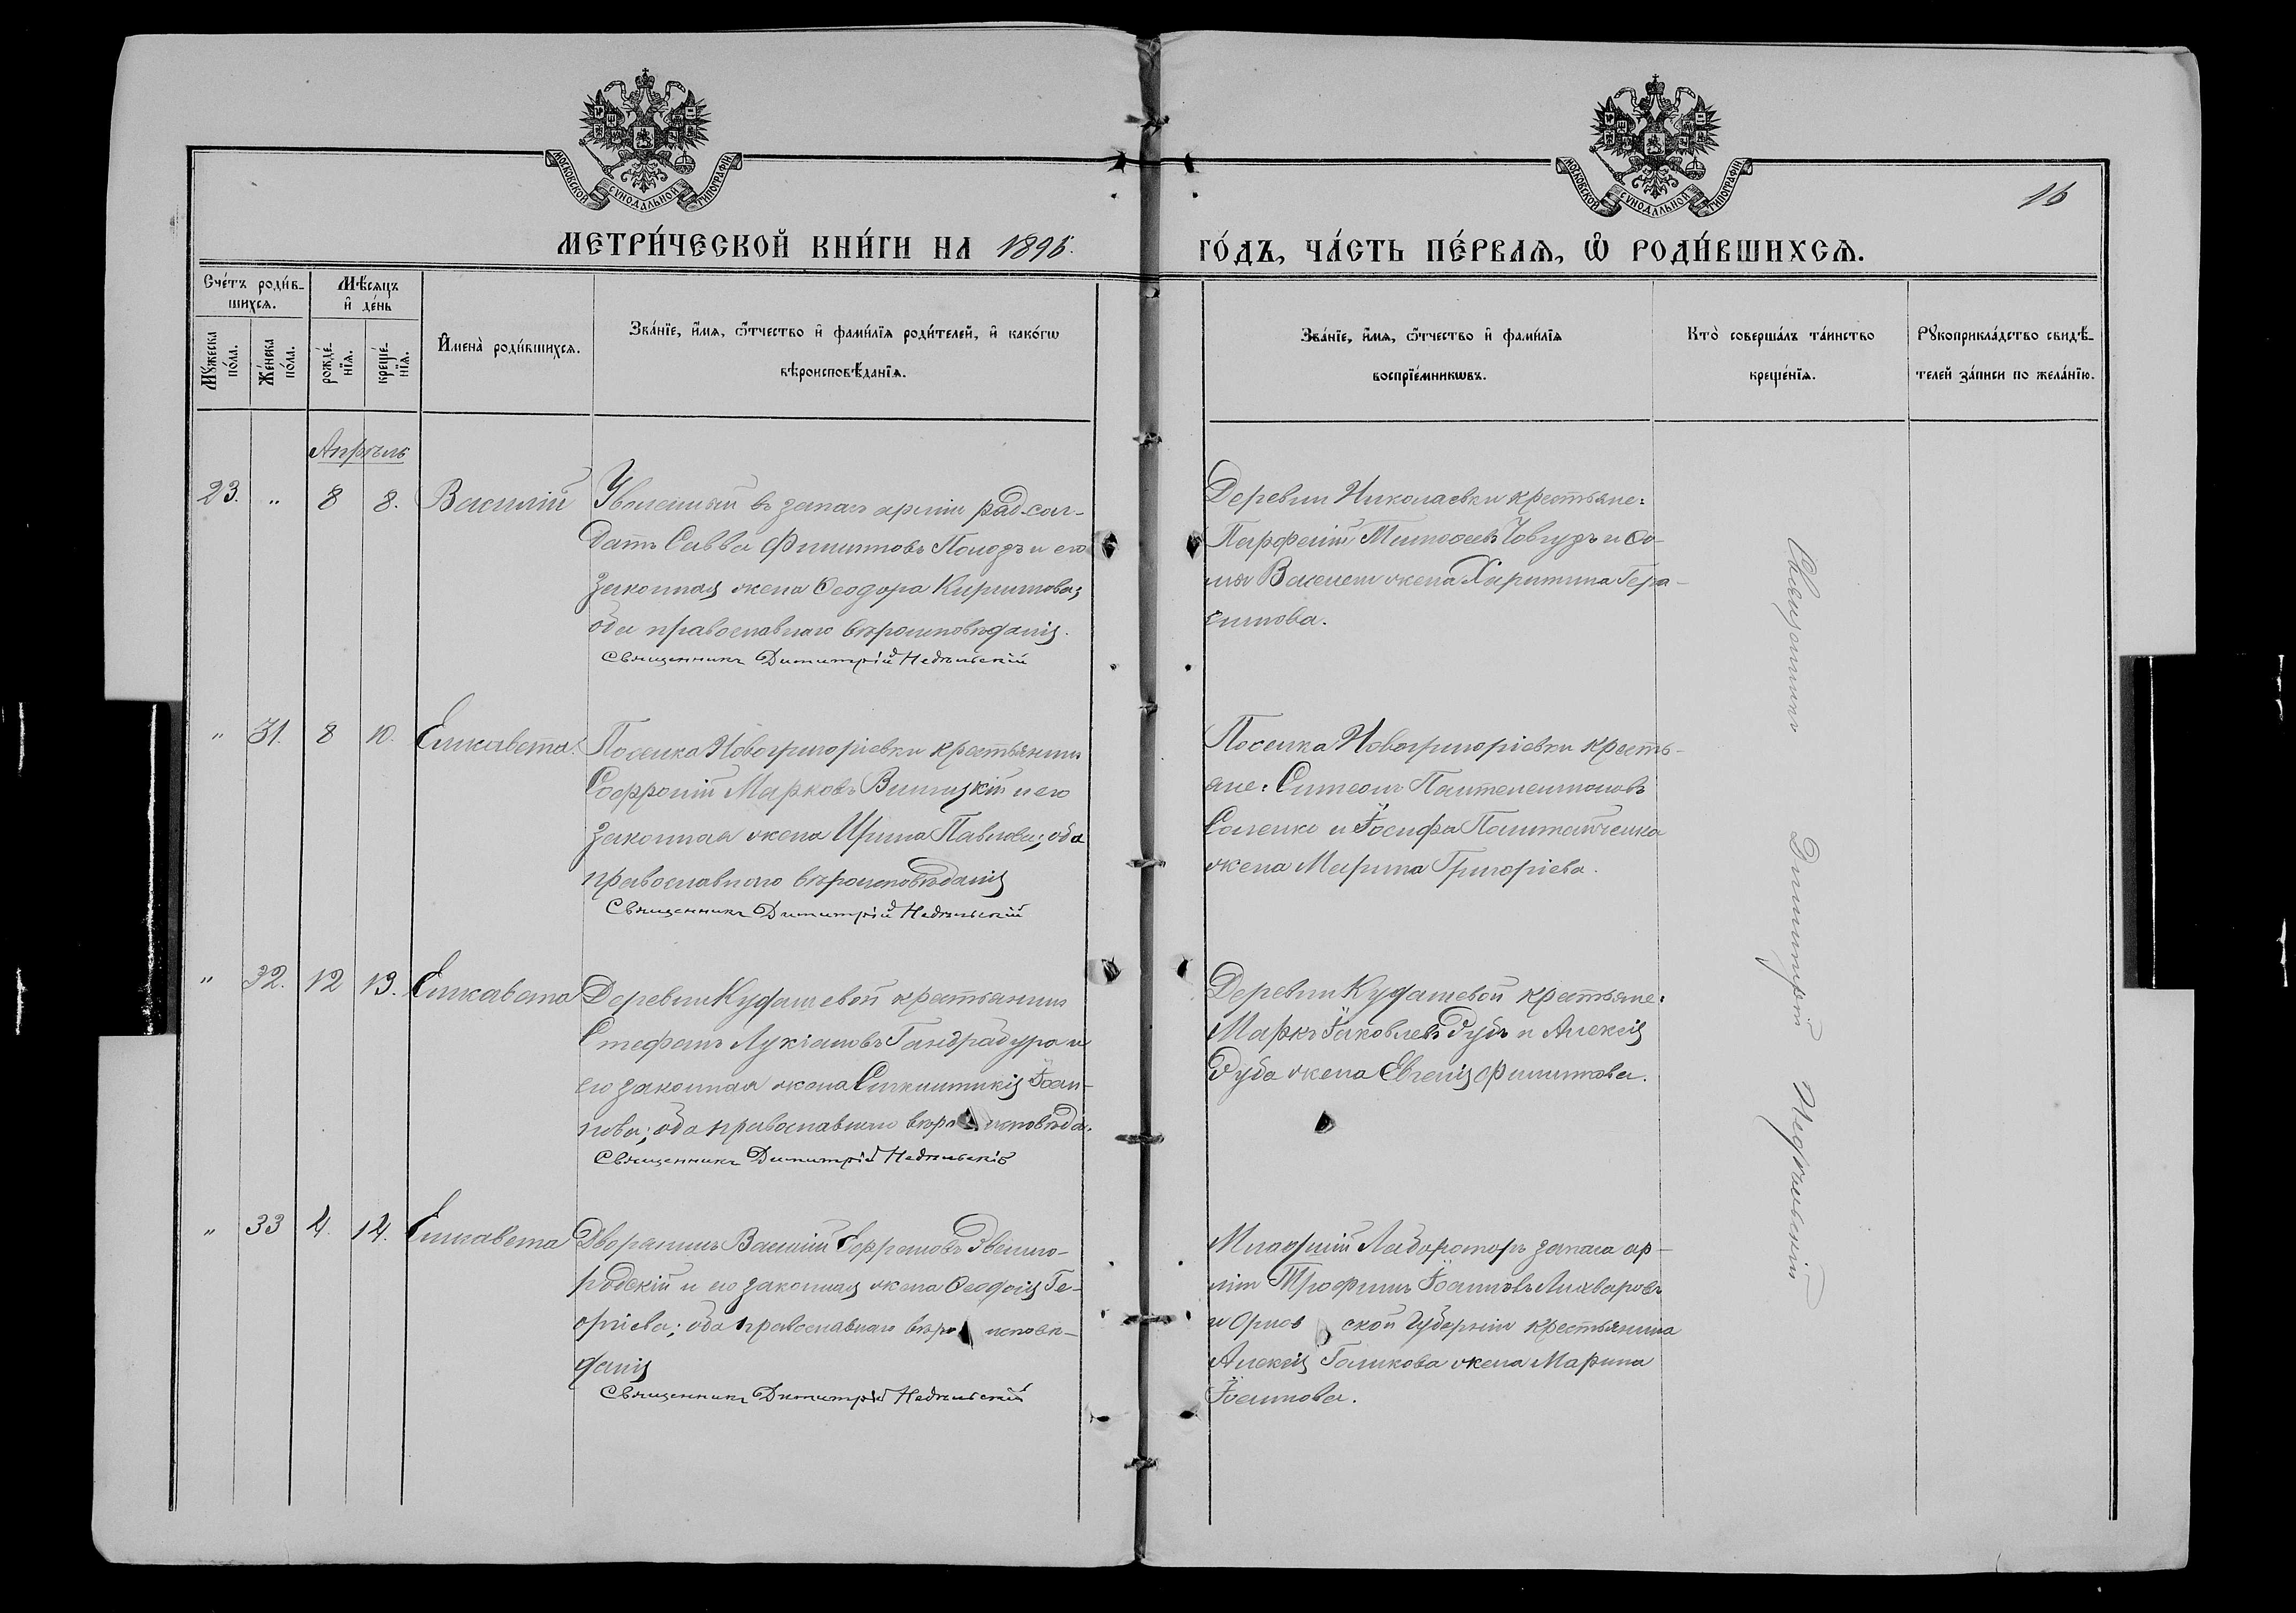 МОСКОВСКОЙ СѴНОДАЛЬНОЙ ТИПОГРАФІИ
МОСКОВСКОЙ СѴНОДАЛЬНОЙ ТИПОГРАФІИ
16
МЕТРИ́ЧЕСКОЙ КНИ́ГИ НА 1895. ГО́ДЪ, ЧА́СТЬ ПЕ́РВАѦ, Ѡ҆ РОДИ́ВШИХСѦ.
Сче́тъ роди́в-
шихсѧ.
Мѣ́сѧцъ
и҆ де́нь
Мꙋ́жеска по́ла.
Же́нска по́ла.
рожде́-нїѧ.
креще́-нїѧ.
И҆мена̀ роди́вшихсѧ.
Зва́нїе, и҆́мѧ, ѻ҆́тчество и҆ фами́лїѧ роди́телей, и҆ како́гѡ
вѣроисповѣ́данїѧ.
Зва́нїе, и҆́мѧ, ѻ҆́тчество и҆ фами́лїѧ
воспрїе́мникѡвъ.
Кто̀ соверша́лъ та́инство
креще́нїѧ.
Рꙋкоприкла́дство свидѣ́-
телей за́писи по жела́нїю.
Апрѣль
23. " 8 8. Василій
Уволенный въ запасъ арміи ряд. сол-
датъ Савва Филипповъ и его
законная жена Ѳеодора Кириллова;
оба православнаго вѣроисповѣданія.
Священникъ Димитрій Недѣльскій
Деревни Николаевки крестьяне:
Парфеній Тимоѳеевъ и Ѳо-
мы жена Харитина Гера-
симова.
" 31. 8 10. Елисавета.
Поселка Новогригоріевки крестьянинъ
Софроній Марковъ Винницкій и его
законная жена Ирина Павлова; оба
православнаго вѣроисповѣданія
Священникъ Димитрій Недѣльскій
Поселка Новогригоріевки кресть-
яне: Симеонъ Пантелеимоновъ
и Іосифа
жена Марина Григоріева.
" 32. 12 13. Елисавета
Деревни Кудашевой крестьянинъ
Стефанъ Лукіановъ Гандрабура и
его законная жена Синклитикія Іоан-
нова; оба православнаго вѣроисповѣда.
Священникъ Димитрій Недѣльскій
Деревни Кудашевой крестьяне:
Маркъ Іаковлевъ Дубъ и Алексія
Дуба жена Евгенія Филиппова.
" 33 4. 14. Елисавета
Дворянинъ Василій Софроновъ Звенино-
родскій и его законная жена Ѳеодосія Ге-
оргіева; оба православнаго вѣроисповѣ-
данія
Священникъ Димитрій Недѣльскій
Младшій Лаборатор запаса ар-
міи Трофимъ Іоанновъ Лихваровъ
и Орловской губерніи крестьянина
Алексія Голикова жена Марина
Іоаннова.
Священникъ Димитрій Недѣльскій